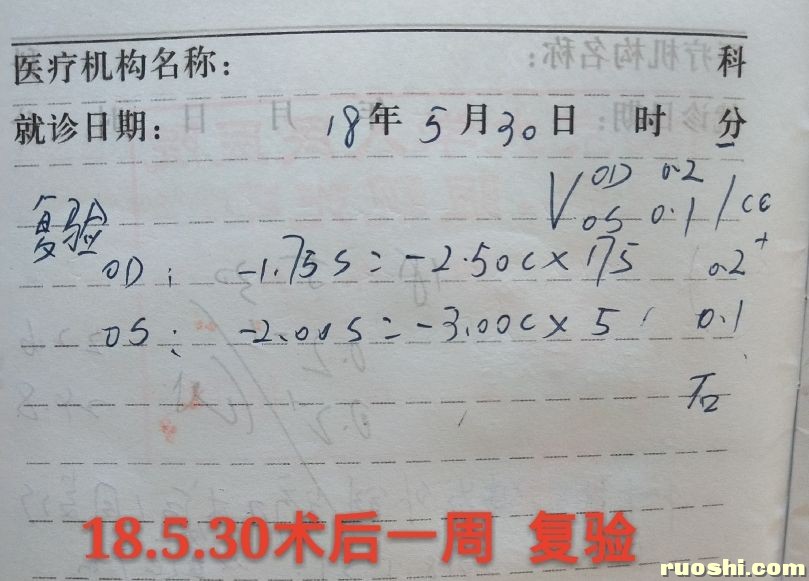 医疗机构名称: 科
就诊日期: 18年5月30日 时 分
复验
V OD 0.2
OS 0.1 / cc
OD: -1.75S = -2.50C × 175 0.2+
OS: -2.00S = -3.00C × 5 0.1
18.5.30术后一周 复验
ruoshi.com